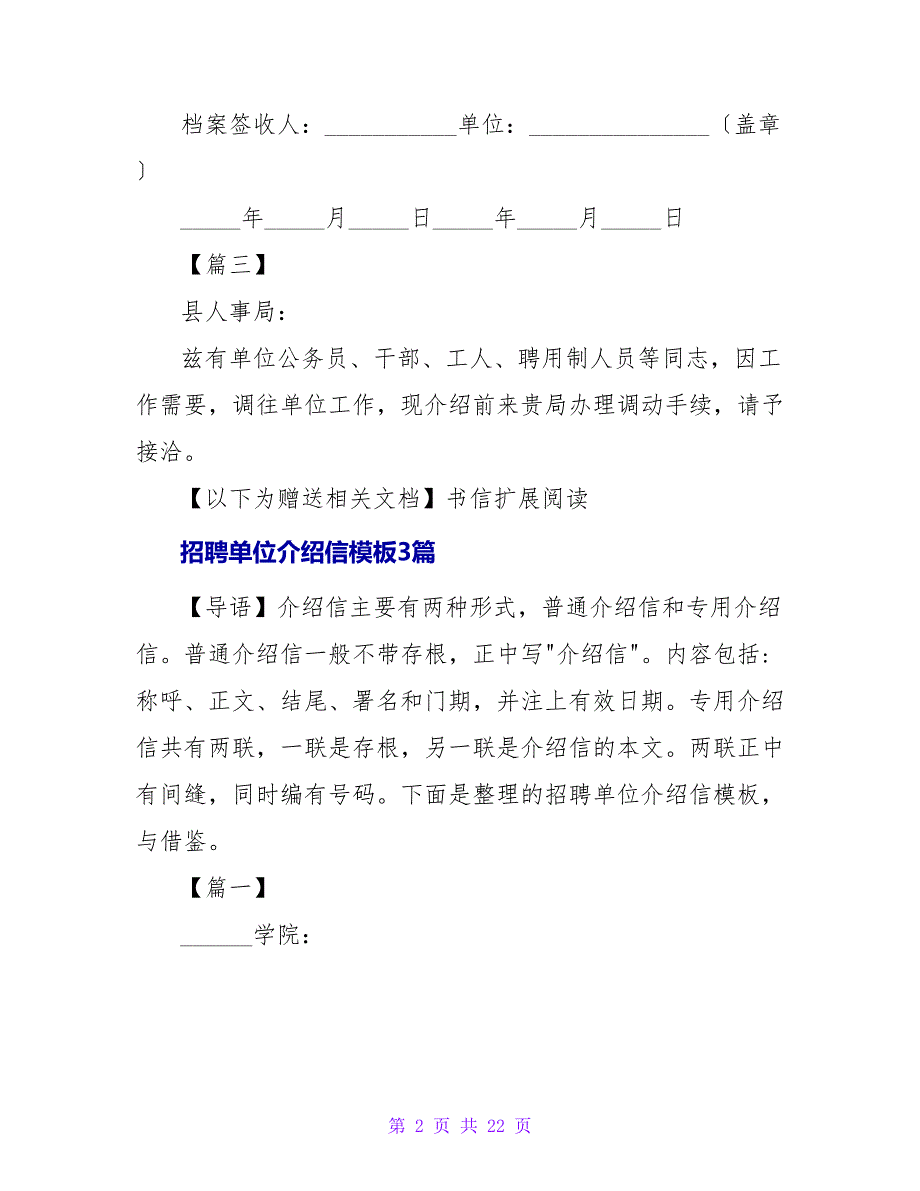 档案签收人：___________单位：_______________〔盖章
〕
_____年_____月_____日_____年_____月_____日
【篇三】
县人事局：
兹有单位公务员、干部、工人、聘用制人员等同志，因工
作需要，调往单位工作，现介绍前来贵局办理调动手续，请予
接洽。
【以下为赠送相关文档】书信扩展阅读
招聘单位介绍信模板3篇
【导语】介绍信主要有两种形式，普通介绍信和专用介绍
信。普通介绍信一般不带存根，正中写"介绍信"。内容包括：
称呼、正文、结尾、署名和门期，并注上有效日期。专用介绍
信共有两联，一联是存根，另一联是介绍信的本文。两联正中
有间缝，同时编有号码。下面是整理的招聘单位介绍信模板，
与借鉴。
【篇一】
______学院：
第 2 页 共 22 页